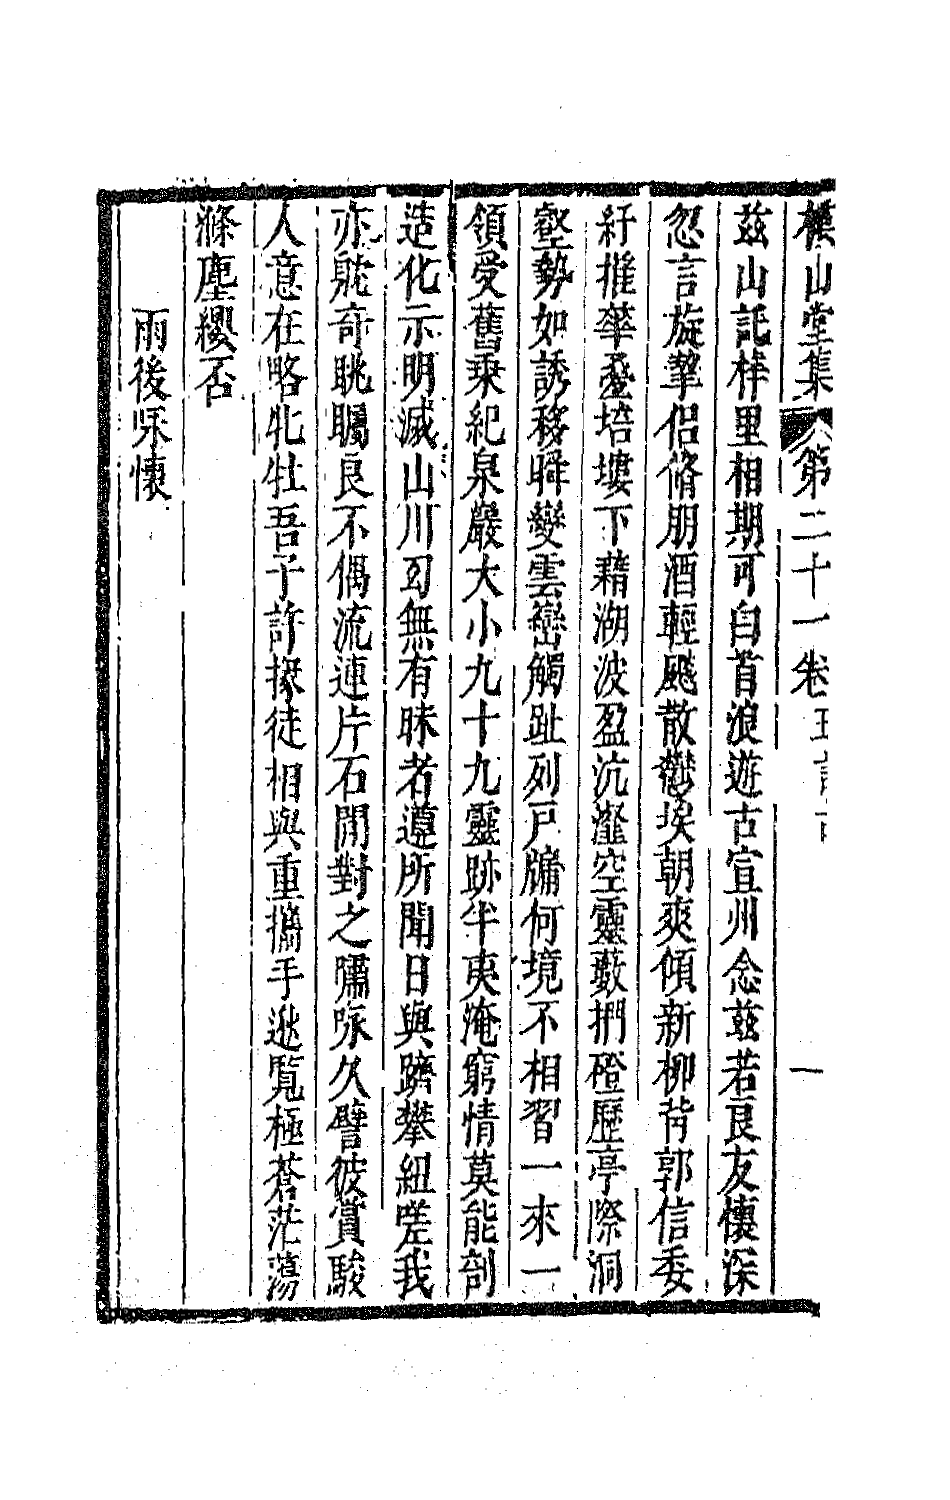 樸山堂集 第二十一卷 五言古 一
茲山託梓里相期可白首浪遊古宣州念茲若良友懷深
忽言旋挈侶脩朋酒輕颸散鬱埃朝爽傾新柳背郭信委
紆推篳疊培塿下藉湖波盈沆瀣空靈藪捫磴歷亭際洞
壑勢如誘移瞬變雲巒觸趾列戶牖何境不相習一來一
領受舊乘紀泉巖大小九十九靈跡半夷淹窮情莫能剖
造化示明滅山川幻無有昧者遵所聞日與躋攀紐嗟我
亦躭奇眺矚良不偶流連片石閒對之嘯咏久譬彼賞駿
人意在略牝牡吾子許掾徒相與重攜手逖覽極蒼茫蕩
滌塵纓否
雨後咏懷